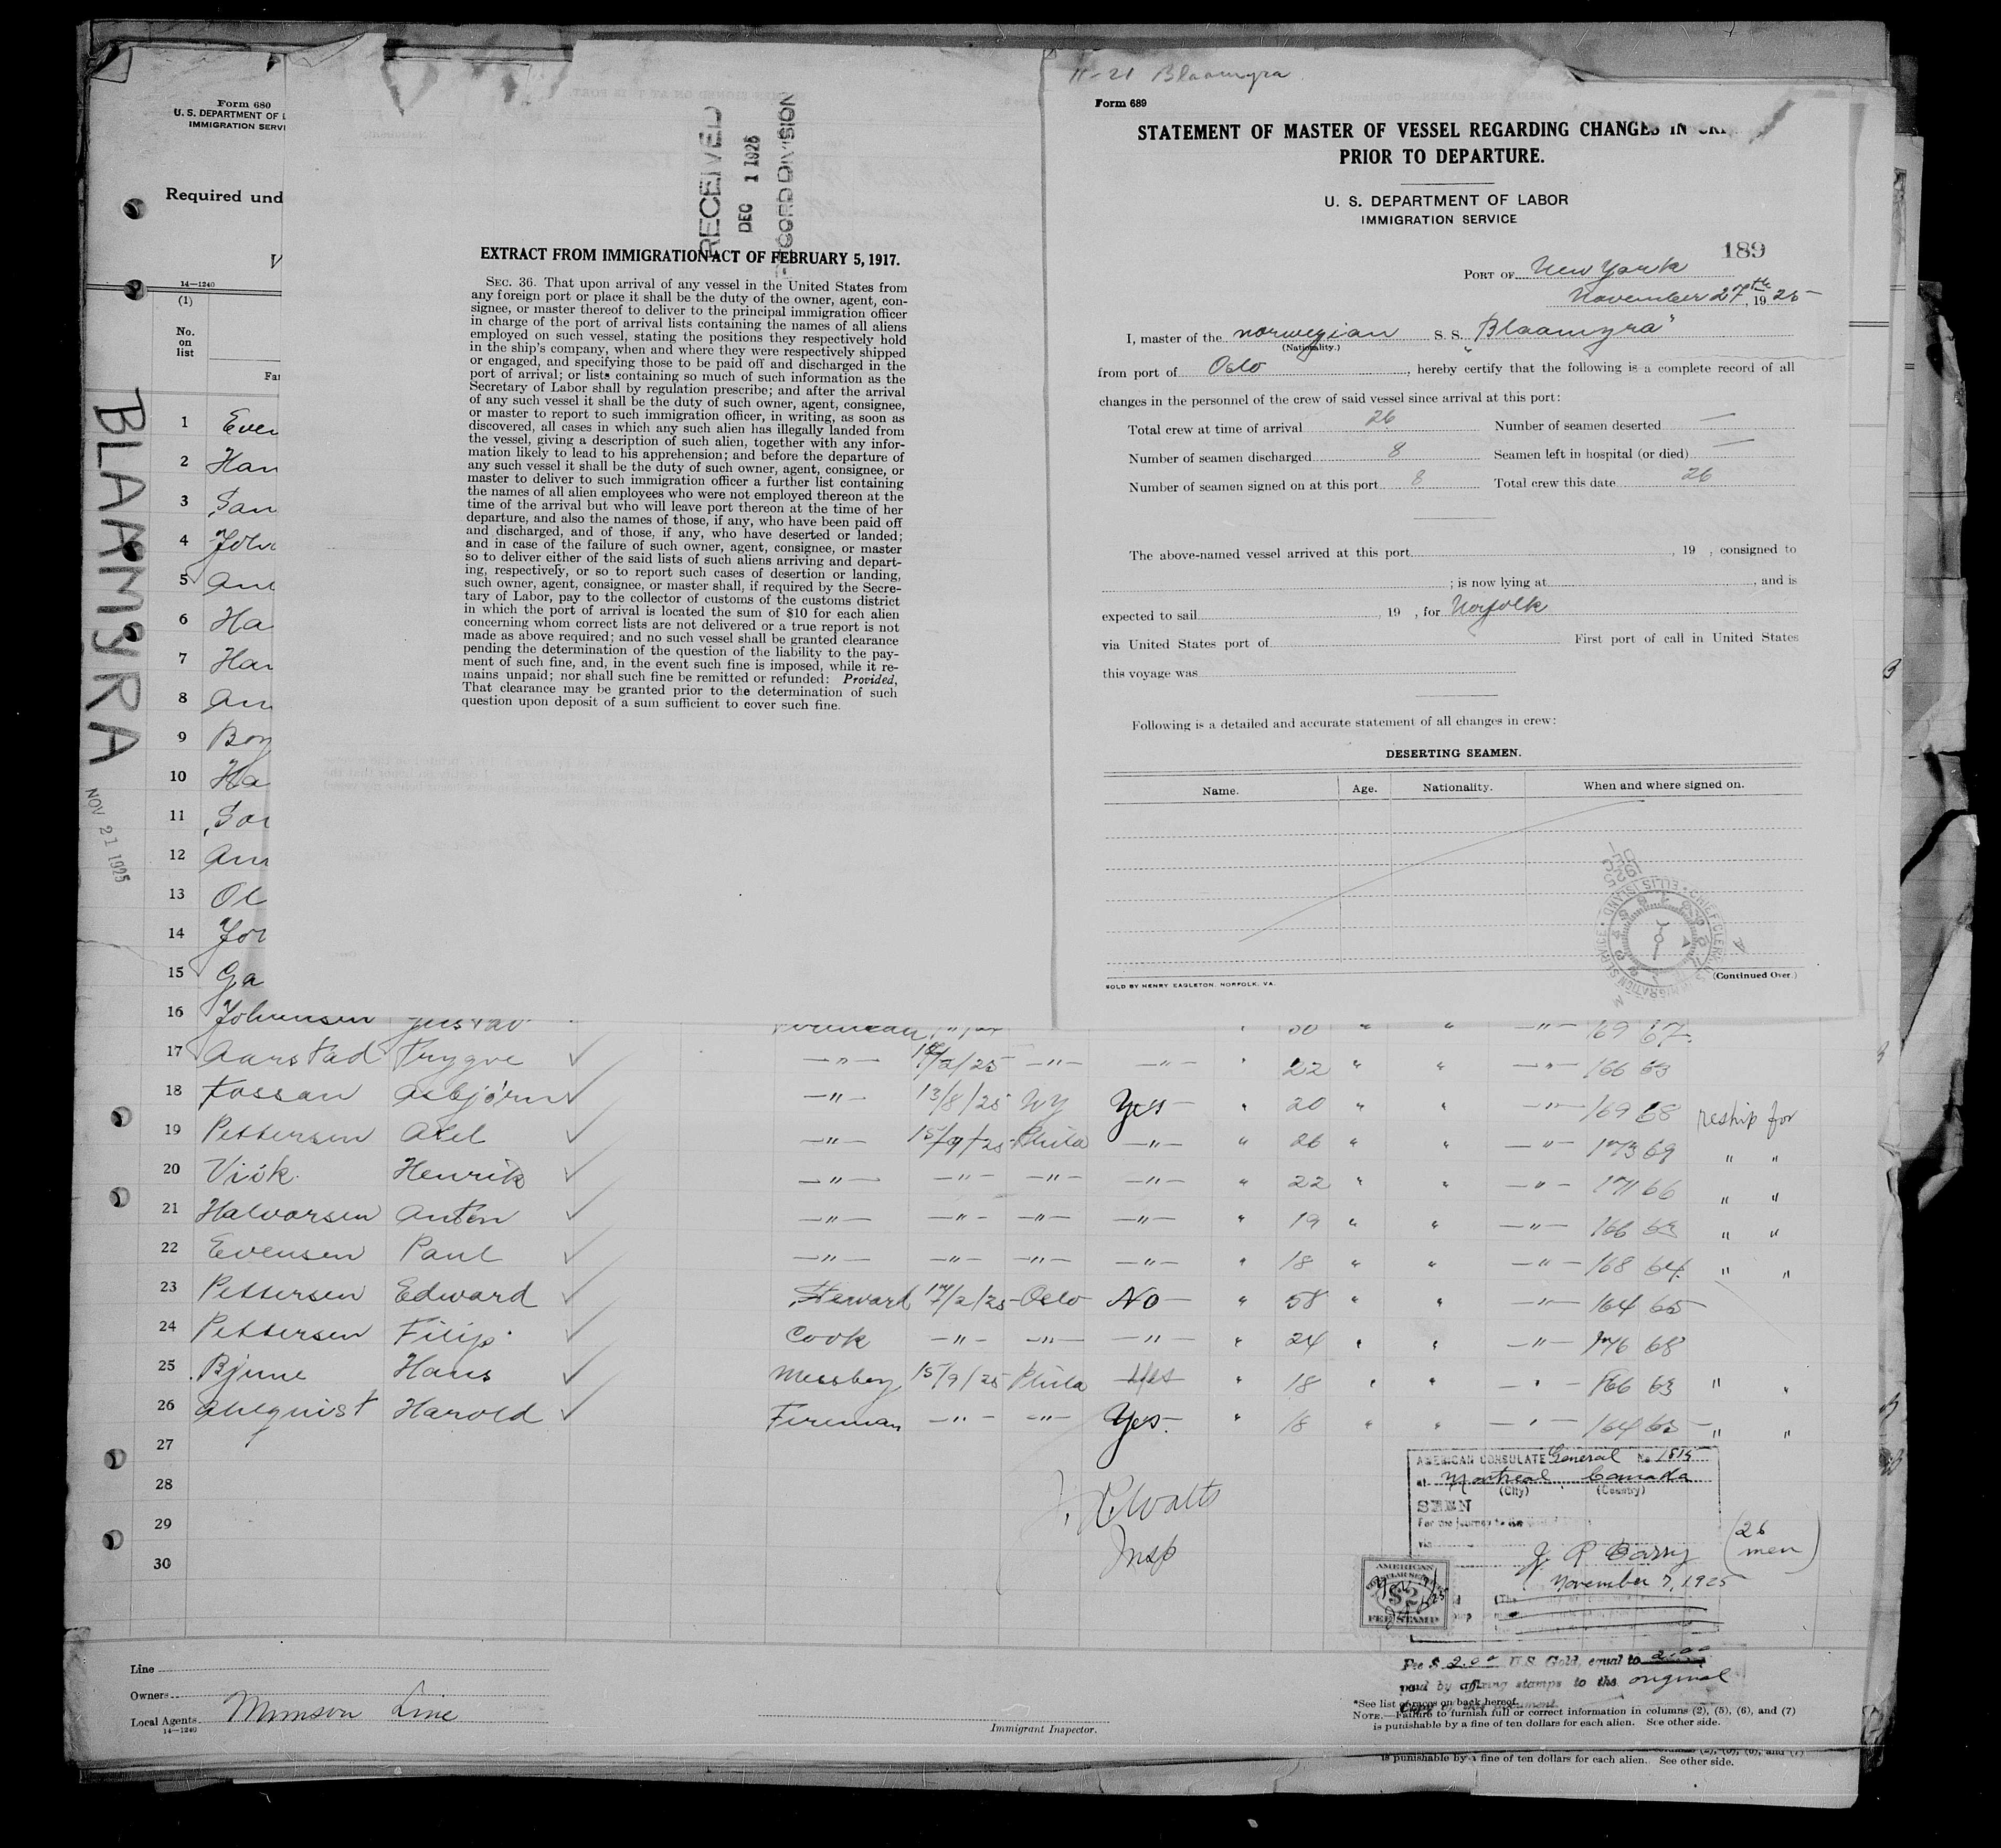 Form 680
U. S. DEPARTMENT OF L
IMMIGRATION SERVI
Required und
V
14—1240
(1)
No.
on
list
Fa
BLAAMYRA
NOV 21 1925
1 Even
2 Han
3 San
4 Joh
5 An
6 Ha
7 Han
8 An
9 Boy
10 Ha
11 Sor
12 Am
13 Ol
14 Jor
15 Ga
RECEIVED
DEC 1 1925
RECORD DIVISION
EXTRACT FROM IMMIGRATION ACT OF FEBRUARY 5, 1917.
SEC. 36. That upon arrival of any vessel in the United States from
any foreign port or place it shall be the duty of the owner, agent, con-
signee, or master thereof to deliver to the principal immigration officer
in charge of the port of arrival lists containing the names of all aliens
employed on such vessel, stating the positions they respectively hold
in the ship's company, when and where they were respectively shipped
or engaged, and specifying those to be paid off and discharged in the
port of arrival; or lists containing so much of such information as the
Secretary of Labor shall by regulation prescribe; and after the arrival
of any such vessel it shall be the duty of such owner, agent, consignee,
or master to report to such immigration officer, in writing, as soon as
discovered, all cases in which any such alien has illegally landed from
the vessel, giving a description of such alien, together with any infor-
mation likely to lead to his apprehension; and before the departure of
any such vessel it shall be the duty of such owner, agent, consignee, or
master to deliver to such immigration officer a further list containing
the names of all alien employees who were not employed thereon at the
time of the arrival but who will leave port thereon at the time of her
departure, and also the names of those, if any, who have been paid off
and discharged, and of those, if any, who have deserted or landed;
and in case of the failure of such owner, agent, consignee, or master
so to deliver either of the said lists of such aliens arriving and depart-
ing, respectively, or so to report such cases of desertion or landing,
such owner, agent, consignee, or master shall, if required by the Secre-
tary of Labor, pay to the collector of customs of the customs district
in which the port of arrival is located the sum of $10 for each alien
concerning whom correct lists are not delivered or a true report is not
made as above required; and no such vessel shall be granted clearance
pending the determination of the question of the liability to the pay-
ment of such fine, and, in the event such fine is imposed, while it re-
mains unpaid; nor shall such fine be remitted or refunded: Provided,
That clearance may be granted prior to the determination of such
question upon deposit of a sum sufficient to cover such fine.
11-21 Blaamyra
Form 689
STATEMENT OF MASTER OF VESSEL REGARDING CHANGES IN CR
PRIOR TO DEPARTURE.
U. S. DEPARTMENT OF LABOR
IMMIGRATION SERVICE
189
PORT OF New York
November 27th, 1925
I, master of the norwegian S. S. "Blaamyra"
(Nationality.)
from port of Oslo, hereby certify that the following is a complete record of all
changes in the personnel of the crew of said vessel since arrival at this port:
Total crew at time of arrival 26 Number of seamen deserted —
Number of seamen discharged 8 Seamen left in hospital (or died) —
Number of seamen signed on at this port 8 Total crew this date 26
The above-named vessel arrived at this port , 19 , consigned to
; is now lying at , and is
expected to sail , 19 , for Norfolk
via United States port of First port of call in United States
this voyage was
Following is a detailed and accurate statement of all changes in crew:
DESERTING SEAMEN.
Name. Age. Nationality. When and where signed on.
1925 DEC 1
CHIEF CLERK U.S. IMMIGRATION SERVICE ELLIS ISLAND
(Continued Over.)
SOLD BY HENRY EAGLETON, NORFOLK, VA.
16 Johansen Gustav Fireman 30 " " —"— 169 67
17 Aarstad Trygve —"— /2/25 —"— —"— " 22 " " —"— 166 63
18 Fossan Asbjörn —"— 13/8/25 NY Yes " 20 " " —"— 169 68 reship for
19 Pettersen Axel —"— 15/9/25 Phila —"— " 26 " " —"— 173 69 " "
20 Viik Henrik —"— —"— —"— —"— " 22 " " —"— 171 66 " "
21 Halvorsen Anton —"— —"— —"— —"— " 19 " " —"— 166 63 " "
22 Evensen Paul —"— —"— —"— —"— " 18 " " —"— 168 64 " "
23 Pettersen Edward Steward 17/2/25 Oslo No " 58 " " —"— 164 65
24 Pettersen Filip Cook —"— —"— —"— " 24 " " —"— 176 68
25 Bjune Hans Messboy 15/9/25 Phila Yes " 18 " " —"— 166 63 " "
26 Ahlquist Harold Fireman —"— —"— Yes " 18 " " —"— 164 63 " "
27
28
29
30
Watts
Insp
AMERICAN CONSULATE General No 1815
at Montreal Canada
(City) (Country)
SEEN
For the journey to the
via
J. P. Carry (26 men)
November 7, 1925
AMERICAN
CONSULAR SERVICE
$2
FEE STAMP
Fee $ 2.00 U.S. Gold, equal to 2.00
paid by affixing stamps to the original
copy of this document.
Line
Owners
Local Agents Munson Line
14—1240
Immigrant Inspector.
*See list of races on back hereof.
NOTE.—Failure to furnish full or correct information in columns (2), (5), (6), and (7)
is punishable by a fine of ten dollars for each alien. See other side.
is punishable by a fine of ten dollars for each alien. See other side.